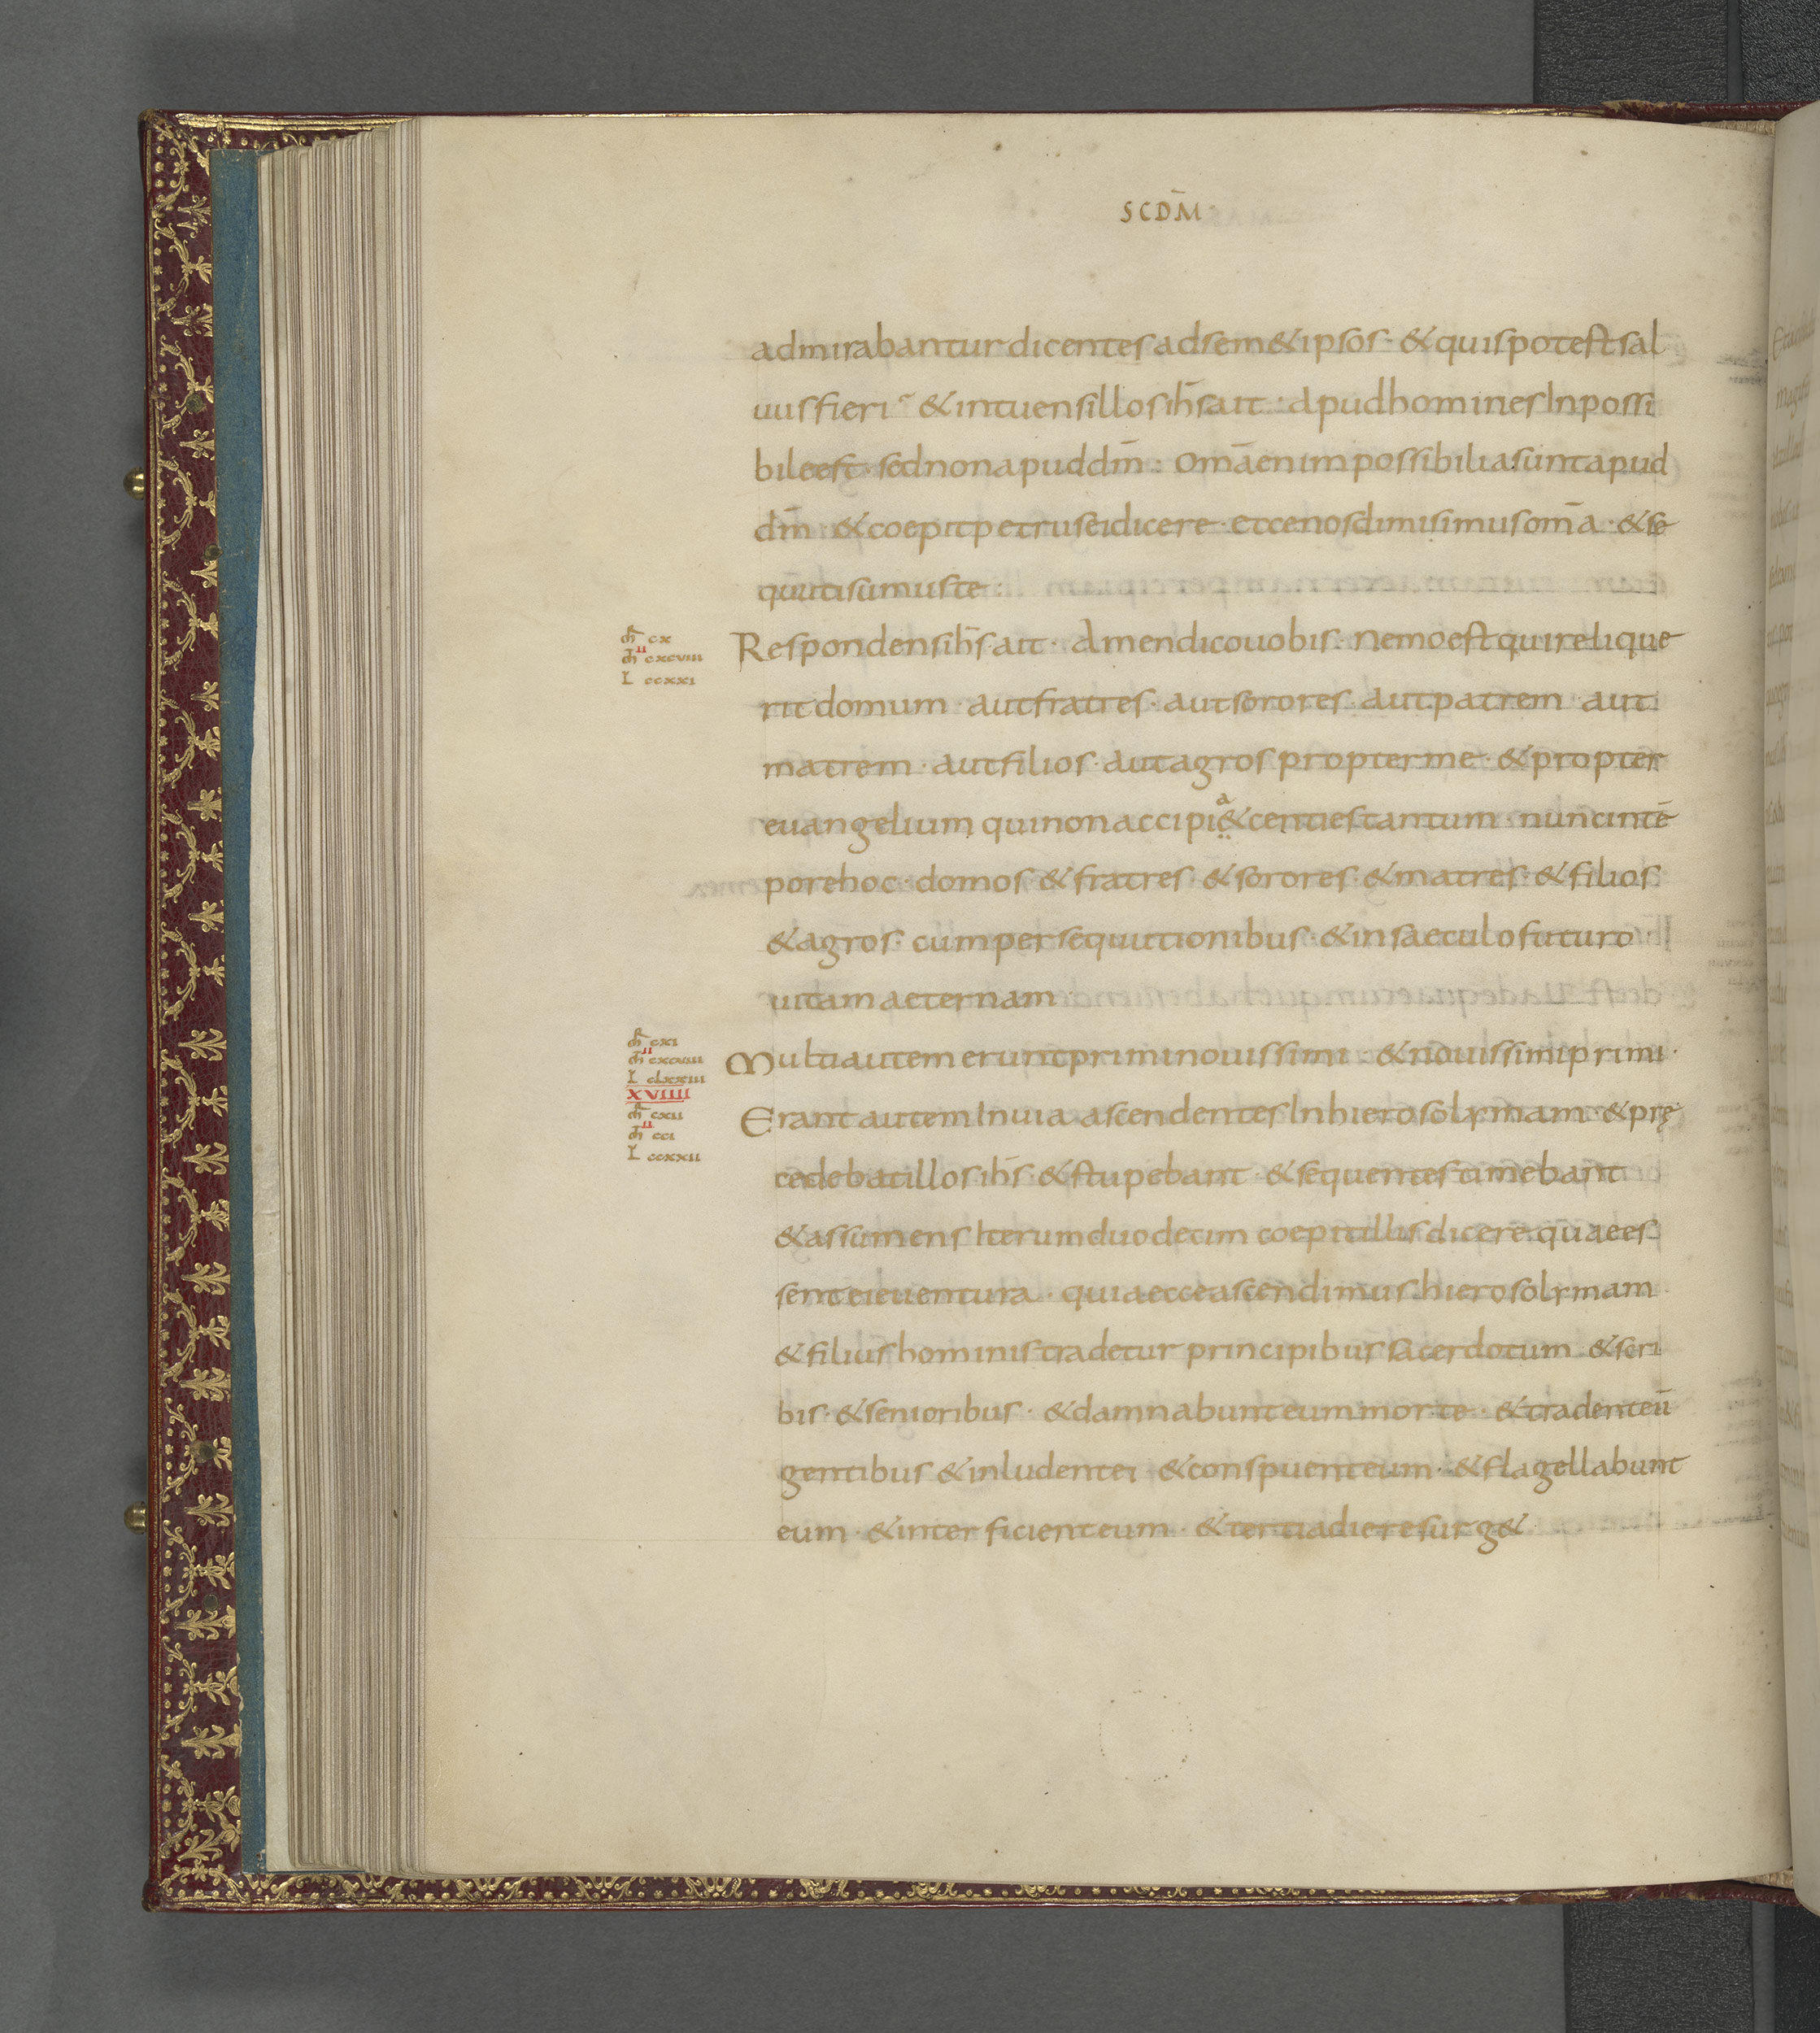 SCDM̄
admirabantur dicentes adsem&ipsos · & quis potest sal
uus fieri & intuens illos ih̄s ait · apud homines Inpossi
bile est · sed non apud dm̄ : omā enim possibilia sunt apud
dm̄ · & coepit petrus ei dicere · ecce nos dimisimus om̄a · & se
quuti sumus te :
mr̄ cx
Respondens ih̄s · ait · amen dico uobis · nemo est qui relique
m̄ II cxcuiii
L ccxxi
rit domum · aut fratres · aut sorores · aut patrem · aut
matrem · aut filios · aut agros propter me · & propter
a
euangelium qui non accipi& centies tantum · nunc in tē
pore hoc · domos & fratres · & sorores · & matres · & filios
& agros · cum persequutionibus · & in saeculo futuro
uitam aeternam ·
mr̄ cxi
m̄ II cxcuiiii
Multi autem erunt primi nouissimi · & nouissimi primi ·
L clxxiii
XVIIII
mr̄ cxii
Erant autem In uia ascendentes In hierosolymam · & prę
m̄ II cci
L ccxxii
cedebat illos ih̄s · & stupebant · & sequentes timebant
& assumens Iterum duodecim coepit illis dicere quae es
sent ei euentura · quia ecce ascendimus hierosolymam
& filius hominis tradetur principibus sacerdotum · & scri
bis · & senioribus · & damnabunt eum morte · & tradent eū
gentibus & inludent ei · & conspuent eum · & flagellabunt
eum · & interficient eum · & tertia die resurg& ·